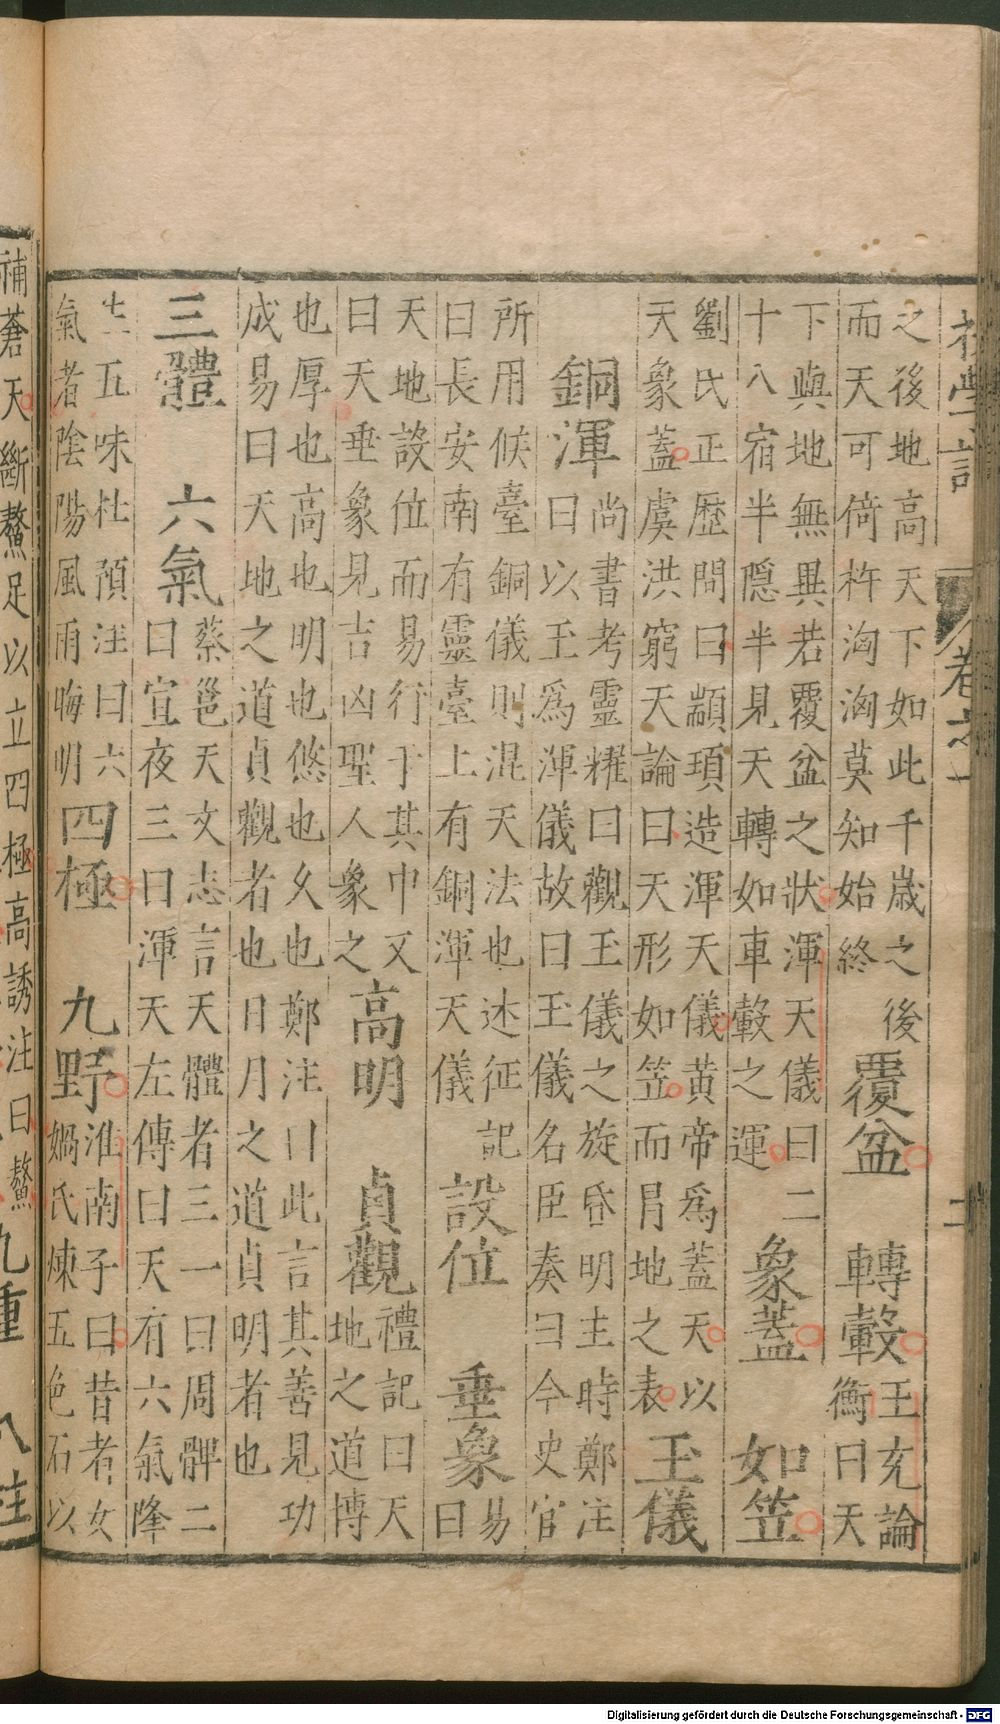 初學記 卷之一 二
之後地高天下如此千歲之後
而天可倚杵洶洶莫知始終
覆盆 轉轂
王充論
衡曰天
下與地無異若覆盆之狀渾天儀曰二
十八宿半隱半見天轉如車轂之運
象蓋 如笠
劉氏正歷問曰顓頊造渾天儀黃帝爲蓋天以
天象蓋虞洪窮天論曰天形如笠而冐地之表
玉儀
銅渾
尚書考靈耀曰觀玉儀之旋昏明主時鄭注
曰以玉爲渾儀故曰玉儀名臣奏曰今史官
所用候臺銅儀則混天法也述征記
曰長安南有靈臺上有銅渾天儀
設位 垂象
易
曰
天地設位而易行于其中又
曰天垂象見吉凶聖人象之
高明 貞觀
禮記曰天
地之道博
也厚也高也明也悠也久也鄭注曰此言其善見功
成易曰天地之道貞觀者也日月之道貞明者也
三體 六氣
蔡邕天文志言天體者三一曰周髀二
曰宣夜三曰渾天左傳曰天有六氣降
生五味杜預注曰六
氣者陰陽風雨晦明
四極 九野
淮南子曰昔者女
媧氏煉五色石以
補蒼天斷鰲足以立四極高誘注曰鰲
九重 八柱
Digitalisierung gefördert durch die Deutsche Forschungsgemeinschaft - DFG